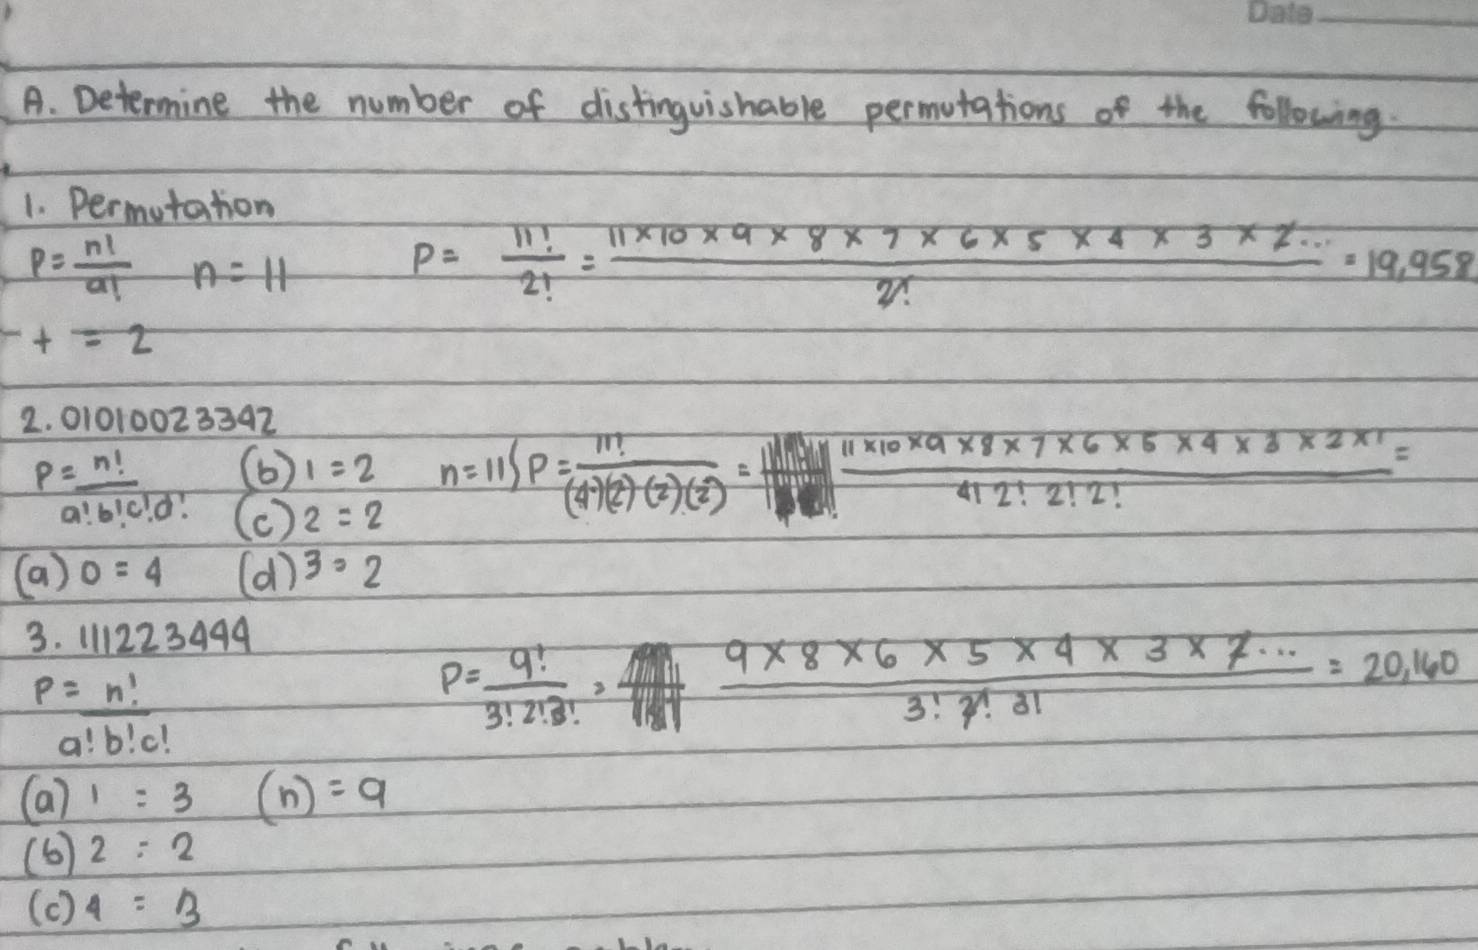 Date
A. Determine the number of distinguishable permutations of the following.
1. Permutation
P = n!/a! n = 11 P = 11!/2! = 11 × 10 × 9 × 8 × 7 × 6 × 5 × 4 × 3 × 2.../2! = 19,958
t = 2
2. 01010023342
P = n!/a!b!c!d! (b) 1 = 2 n = 11 P = 11!/(4!)(2!)(2!)(2!) = 11 × 10 × 9 × 8 × 7 × 6 × 5 × 4 × 3 × 2 × 1/4! 2! 2! 2! =
(c) 2 = 2
(a) 0 = 4 (d) 3 = 2
3. 111223444
P = n!/a!b!c! P = 9!/3! 2! 3! = 9 × 8 × 6 × 5 × 4 × 3 × 2.../3! 2! 3! = 20,160
(a) 1 = 3 (n) = 9
(b) 2 = 2
(c) 4 = 3